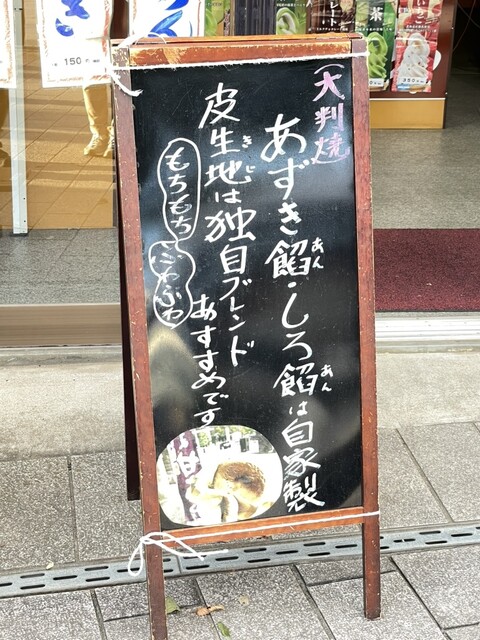 大判焼
あずき餡・しろ餡は自家製
あん
あん
皮生地は独自ブレンド
きじ
もちもち
ふわふわ
おすすめです
150
茶
350